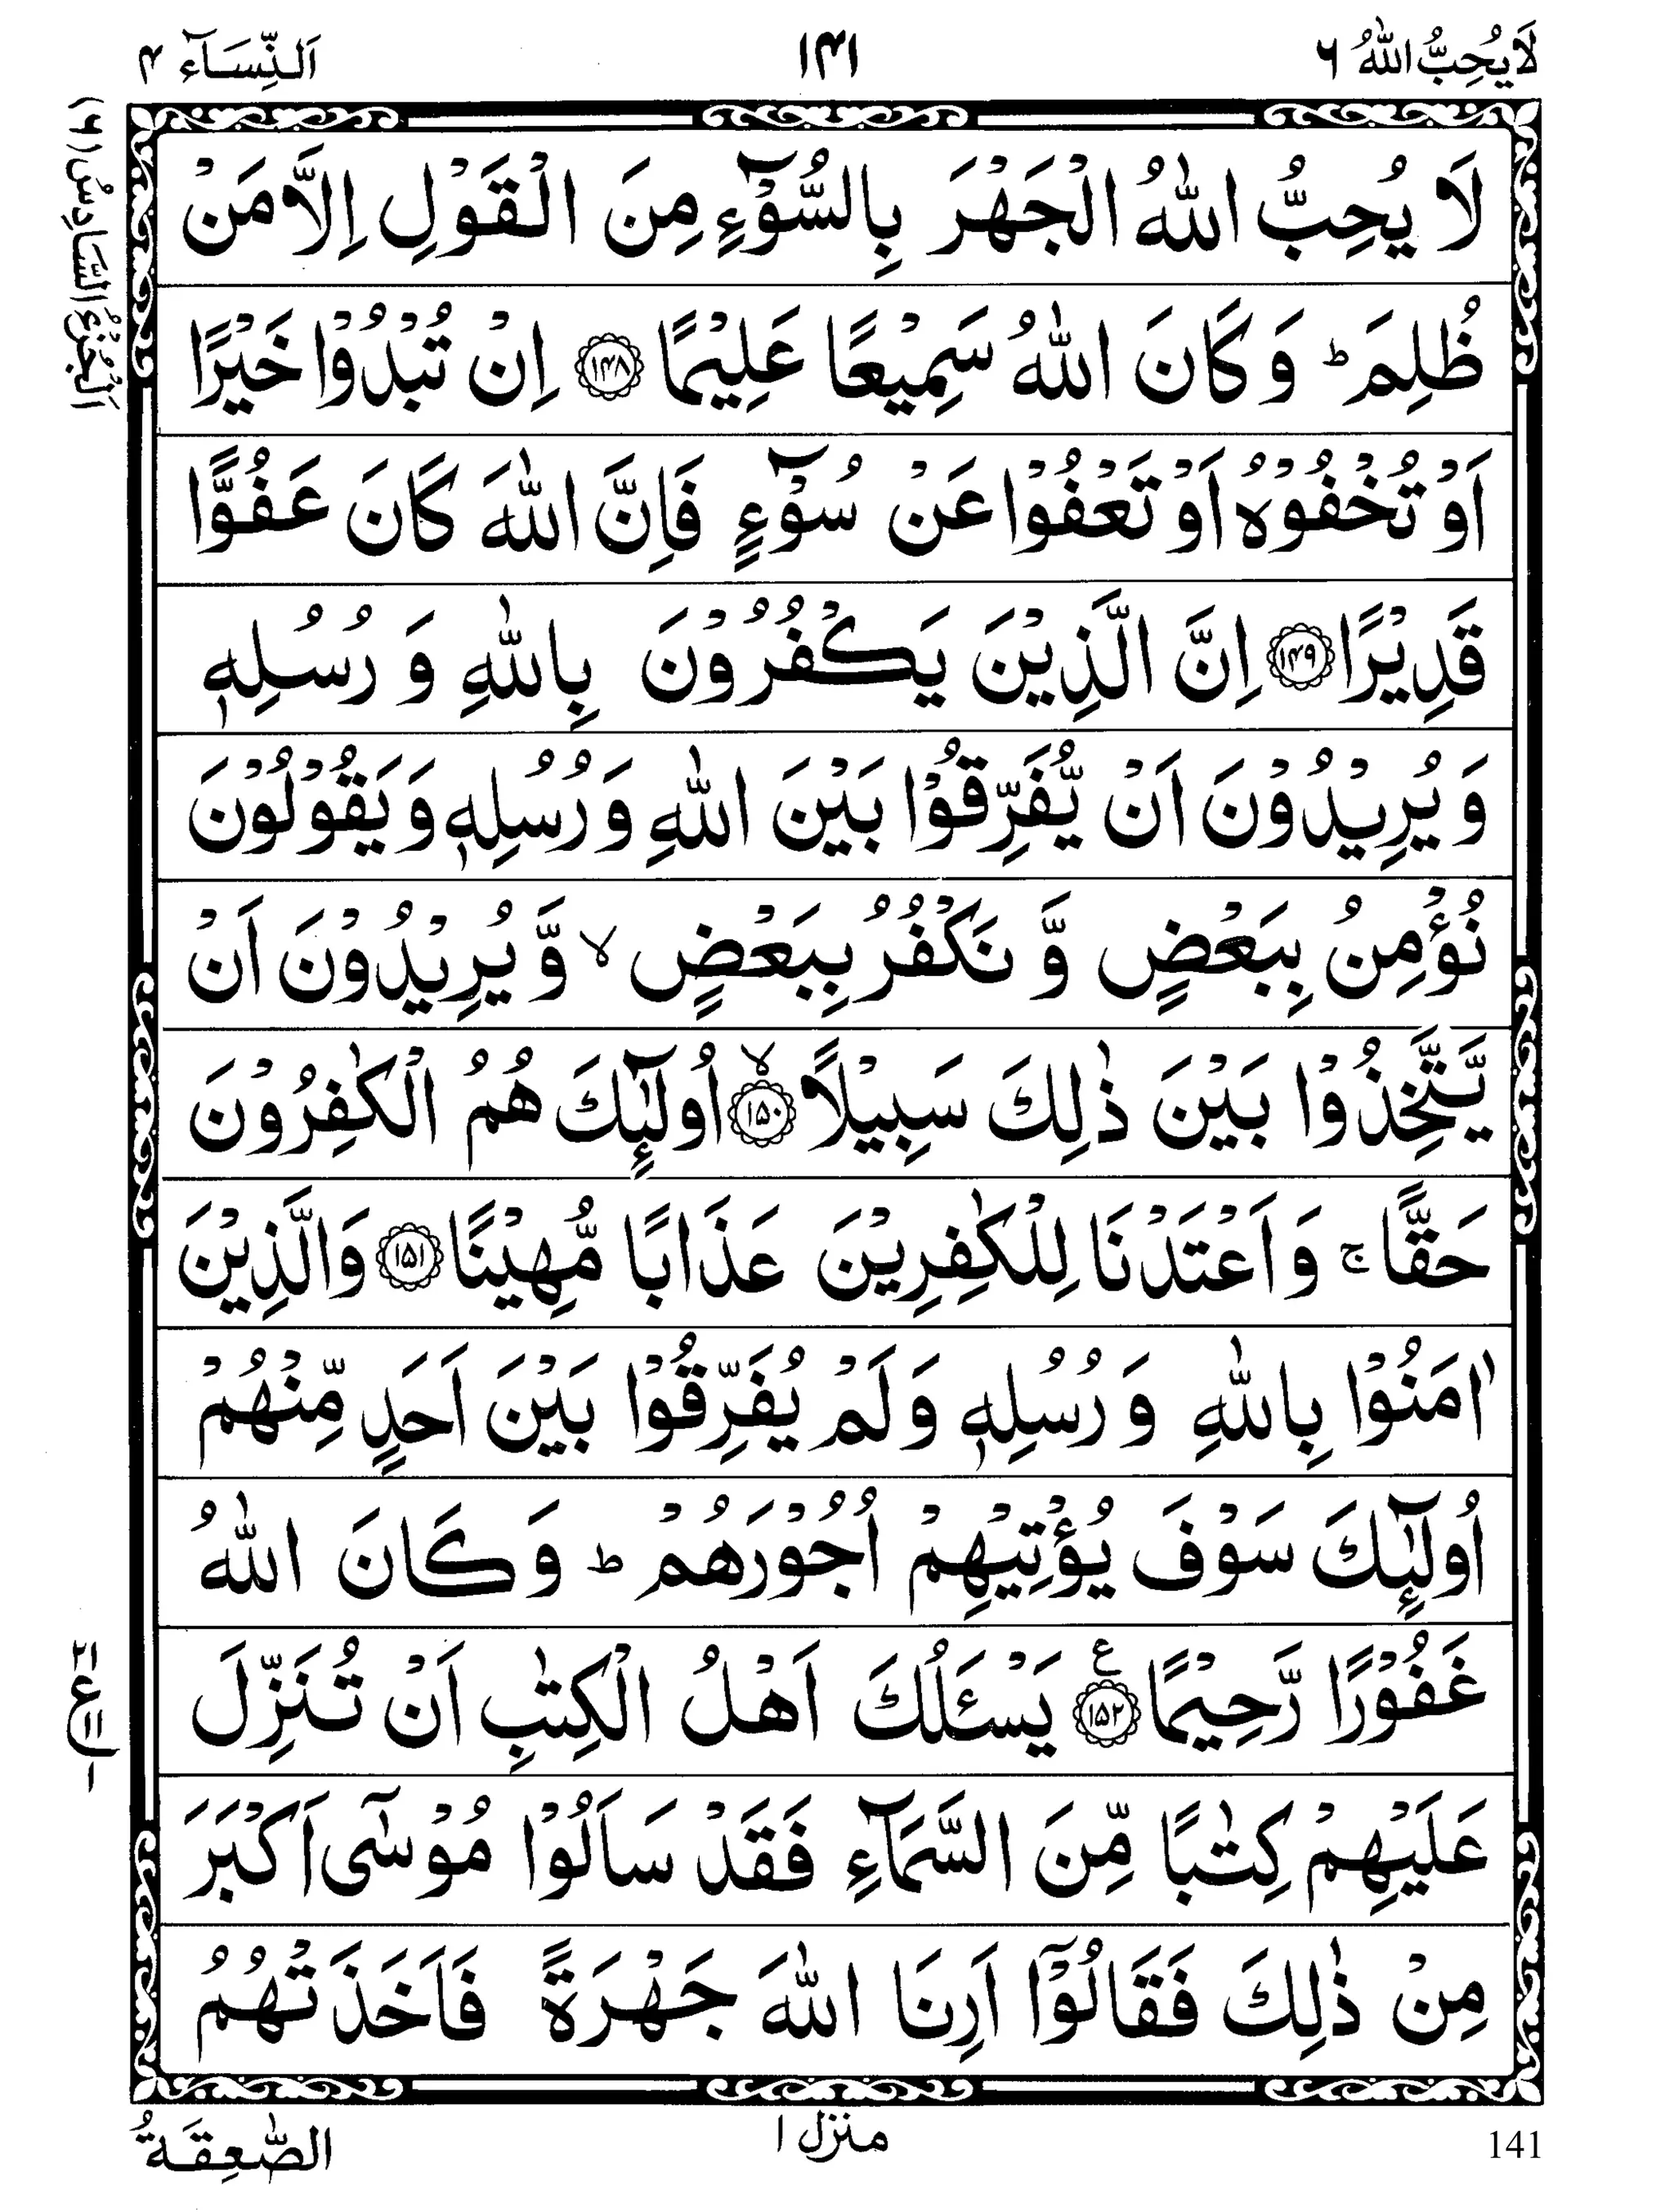 لَا يُحِبُّ اللّٰهُ ۶
۱۴۱
اَلنِّسَآء ۴
اَلْجُزْءُ السَّادِسُ (۶)
لَا يُحِبُّ اللّٰهُ الْجَهْرَ بِالسُّوْٓءِ مِنَ الْقَوْلِ اِلَّا مَنْ
ظُلِمَ ؕ وَ كَانَ اللّٰهُ سَمِيْعًا عَلِيْمًا ﴿۱۴۸﴾ اِنْ تُبْدُوْا خَيْرًا
اَوْ تُخْفُوْهُ اَوْ تَعْفُوْا عَنْ سُوْٓءٍ فَاِنَّ اللّٰهَ كَانَ عَفُوًّا
قَدِيْرًا ﴿۱۴۹﴾ اِنَّ الَّذِيْنَ يَكْفُرُوْنَ بِاللّٰهِ وَ رُسُلِهٖ
وَ يُرِيْدُوْنَ اَنْ يُّفَرِّقُوْا بَيْنَ اللّٰهِ وَ رُسُلِهٖ وَ يَقُوْلُوْنَ
نُؤْمِنُ بِبَعْضٍ وَّ نَكْفُرُ بِبَعْضٍ ۙ وَّ يُرِيْدُوْنَ اَنْ
يَّتَّخِذُوْا بَيْنَ ذٰلِكَ سَبِيْلًا ﴿۱۵۰﴾ۙ اُولٰٓئِكَ هُمُ الْكٰفِرُوْنَ
حَقًّا ۚ وَ اَعْتَدْنَا لِلْكٰفِرِيْنَ عَذَابًا مُّهِيْنًا ﴿۱۵۱﴾ وَالَّذِيْنَ
اٰمَنُوْا بِاللّٰهِ وَ رُسُلِهٖ وَ لَمْ يُفَرِّقُوْا بَيْنَ اَحَدٍ مِّنْهُمْ
اُولٰٓئِكَ سَوْفَ يُؤْتِيْهِمْ اُجُوْرَهُمْ ؕ وَ كَانَ اللّٰهُ
غَفُوْرًا رَّحِيْمًا ﴿۱۵۲﴾ع يَسْـَٔلُكَ اَهْلُ الْكِتٰبِ اَنْ تُنَزِّلَ
عَلَيْهِمْ كِتٰبًا مِّنَ السَّمَآءِ فَقَدْ سَاَلُوْا مُوْسٰٓى اَكْبَرَ
مِنْ ذٰلِكَ فَقَالُوْٓا اَرِنَا اللّٰهَ جَهْرَةً فَاَخَذَتْهُمُ
الصّٰعِقَةُ
منزل ۱
141